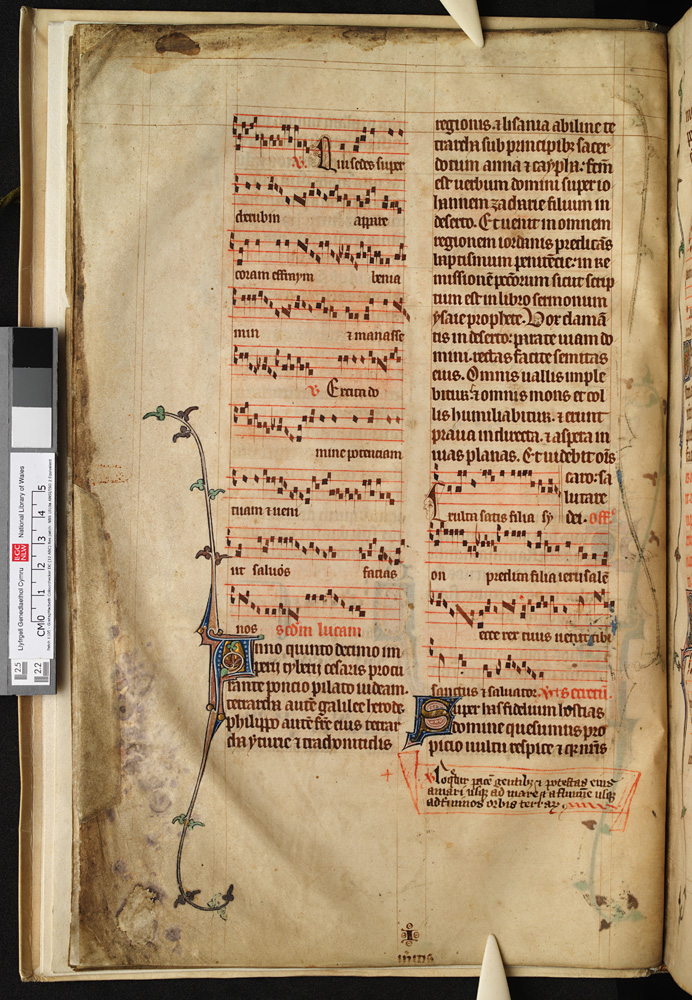 ℣. Qui sedes super
cherubin appare
coram effraym benia
min ⁊ manasse
℣. Excita do
mine potenciam
tuam ⁊ ueni
ut saluos facias
nos scdm lucam
Anno quinto decimo im
perii tyberii cesaris procu
rante poncio pilato iudeam.
tetrarcha autē galilee herode.
philippo autē fr̄e eius tetrar
cha yturie ⁊ traconitidis
regionis. ⁊ lisania abiline te
trarcha sub principibꝫ sacer
dotum anna ⁊ caypha: fcm̄
est uerbum domini super io
hannem zacharie filium in
deserto. Et uenit in omnem
regionem iordanis predicās
baptismum penitēcie: in re
missionē pccōrum sicut scrip
tum est in libro sermonum
ysaie prophete. Vox clamā
tis in deserto: parate uiam do
mini. rectas facite semitas
eius. Omnis uallis imple
bitur: ⁊ omnis mons et col
lis humiliabitur. ⁊ erunt
praua in directa. ⁊ aspera in
uias planas. Et uidebit oīs
caro: sa
lutare
Exulta satis filia sy dei. off.
on predica filia ierusalē
ecce rex tuus uenit tibi
sanctus ⁊ saluator.
Super has fidelium hostias
domine quesumus pro
picio uultu respice ⁊
℣ Loqͥtur pacē gentibꝫ ⁊ potestas eius
a mari usqꝫ ad mare ⁊ a flumīe usqꝫ
ad terminos orbis terrarꝫ
Llyfrgell Genedlaethol Cymru National Library of Wales
LlGC
NLW
CM 0 1 2 3 4 5
2.5
2.2